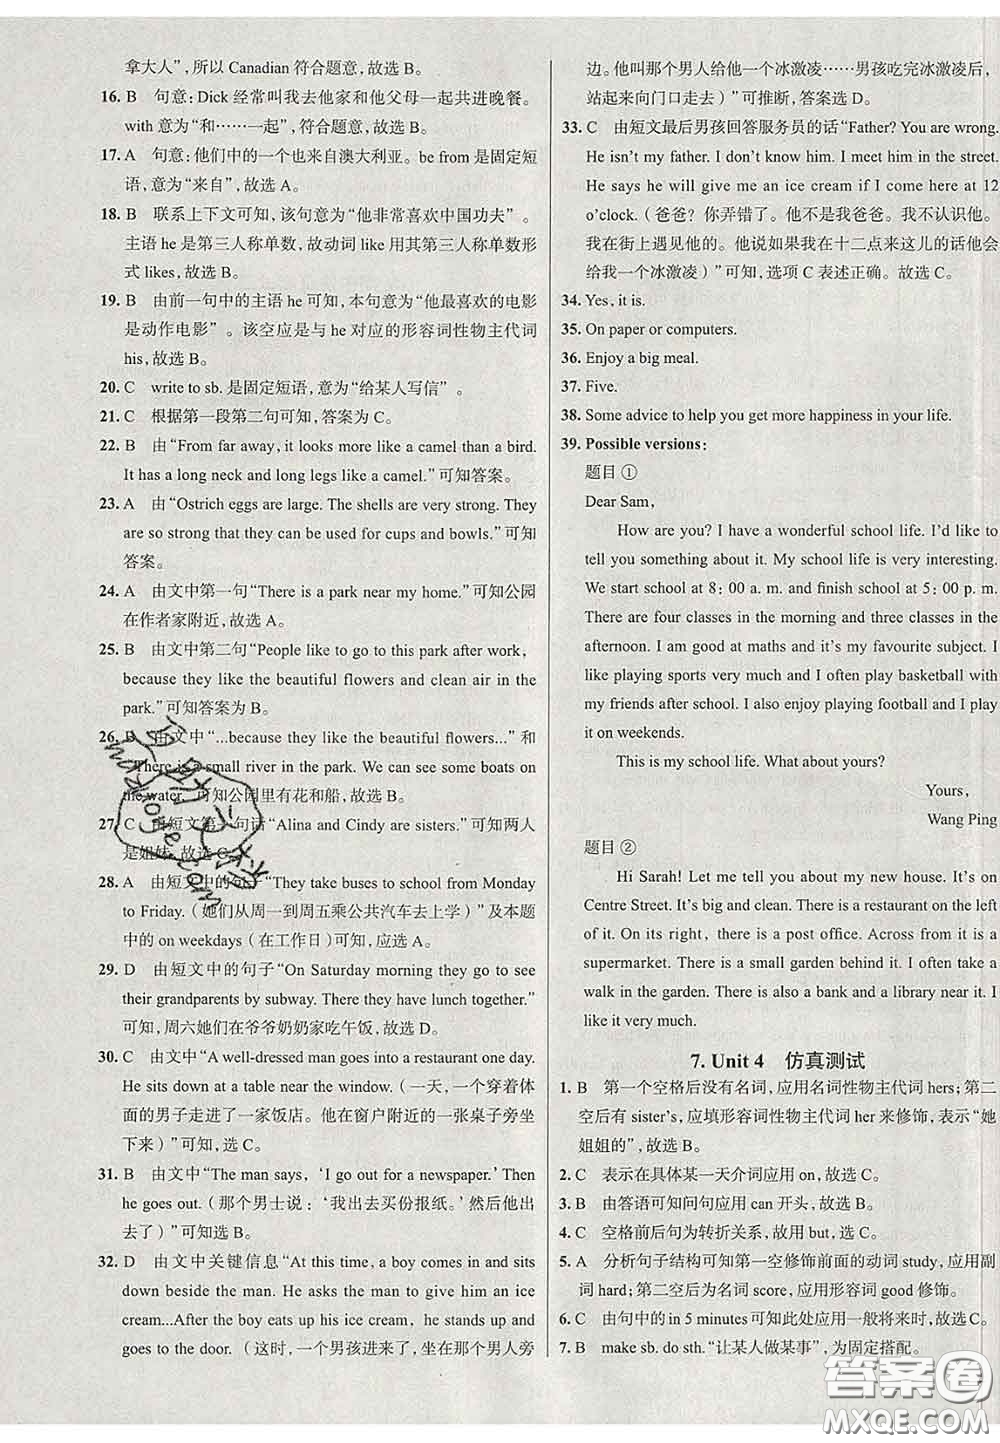 拿大人”，所以 Canadian 符合题意，故选 B。
16. B 句意：Dick 经常叫我去他家和他父母一起共进晚餐。
with 意为“和……一起”，符合题意，故选 B。
17. A 句意：他们中的一个也来自澳大利亚。be from 是固定短
语，意为“来自”，故选 A。
18. B 联系上下文可知，该句意为“他非常喜欢中国功夫”。
主语 he 是第三人称单数，故动词 like 用其第三人称单数形
式 likes，故选 B。
19. B 由前一句中的主语 he 可知，本句意为“他最喜欢的电影
是动作电影”。该空应是与 he 对应的形容词性物主代词
his，故选 B。
20. C write to sb. 是固定短语，意为“给某人写信”。
21. C 根据第一段第二句可知，答案为 C。
22. B 由“From far away, it looks more like a camel than a bird.
It has a long neck and long legs like a camel.”可知答案。
23. A 由“Ostrich eggs are large. The shells are very strong. They
are so strong that they can be used for cups and bowls.”可知
答案。
24. A 由文中第一句“There is a park near my home.”可知公园
在作者家附近，故选 A。
25. B 由文中第二句“People like to go to this park after work，
because they like the beautiful flowers and clean air in the
park.”可知答案为 B。
26. B 由文中“...because they like the beautiful flowers...”和
“There is a small river in the park. We can see some boats on
the water. 可知公园里有花和船，故选 B。
27. C 由短文第 句话“Alina and Cindy are sisters.”可知两人
是姐妹，故选 C。
28. A 由短文中的句子“They take buses to school from Monday
to Friday.（她们从周一到周五乘公共汽车去上学）”及本题
中的 on weekdays（在工作日）可知，应选 A。
29. D 由短文中的句子“On Saturday morning they go to see
their grandparents by subway. There they have lunch together.”
可知，周六她们在爷爷奶奶家吃午饭，故选 D。
30. C 由文中“A well-dressed man goes into a restaurant one day.
He sits down at a table near the window.（一天，一个穿着体
面的男子走进了一家饭店。他在窗户附近的一张桌子旁坐
下来）”可知，选 C。
31. B 由文中“The man says,‘I go out for a newspaper.’Then
he goes out.（那个男士说：‘我出去买份报纸。’然后他出
去了）”可知选 B。
32. D 由文中关键信息“At this time, a boy comes in and sits
down beside the man. He asks the man to give him an ice
cream...After the boy eats up his ice cream, he stands up and
goes to the door.（这时，一个男孩进来了，坐在那个男人旁
边。他叫那个男人给他一个冰激凌……男孩吃完冰激凌后，
站起来向门口走去）”可推断，答案选 D。
33. C 由短文最后男孩回答服务员的话“Father? You are wrong.
He isn't my father. I don't know him. I meet him in the street.
He says he will give me an ice cream if I come here at 12
o'clock.（爸爸？你弄错了。他不是我爸爸。我不认识他。
我在街上遇见他的。他说如果我在十二点来这儿的话他会
给我一个冰激凌）”可知，选项 C 表述正确。故选 C。
34. Yes, it is.
35. On paper or computers.
36. Enjoy a big meal.
37. Five.
38. Some advice to help you get more happiness in your life.
39. Possible versions：
题目 ①
Dear Sam,
How are you? I have a wonderful school life. I'd like to
tell you something about it. My school life is very interesting.
We start school at 8：00 a. m. and finish school at 5：00 p. m.
There are four classes in the morning and three classes in the
afternoon. I am good at maths and it's my favourite subject. I
like playing sports very much and I often play basketball with
my friends after school. I also enjoy playing football and I play
it on weekends.
This is my school life. What about yours?
Yours,
Wang Ping
题目 ②
Hi Sarah! Let me tell you about my new house. It's on
Centre Street. It's big and clean. There is a restaurant on the left
of it. On its right，there is a post office. Across from it is a
supermarket. There is a small garden behind it. I often take a
walk in the garden. There is also a bank and a library near it. I
like it very much.
7. Unit 4 仿真测试
1. B 第一个空格后没有名词，应用名词性物主代词 hers；第二
空后有 sister's，应填形容词性物主代词 her 来修饰，表示“她
姐姐的”，故选 B。
2. C 表示在具体某一天介词应用 on，故选 C。
3. B 由答语可知问句应用 can 开头，故选 B。
4. C 空格前后句为转折关系，故用 but，选 C。
5. A 分析句子结构可知第一空修饰前面的动词 study，应用副
词 hard；第二空后为名词 score，应用形容词 good 修饰。
6. C 由句中的 in 5 minutes 可知此处应用一般将来时，故选 C。
7. B make sb. do sth. “让某人做某事”，为固定搭配。
答案圈
MXQE.COM